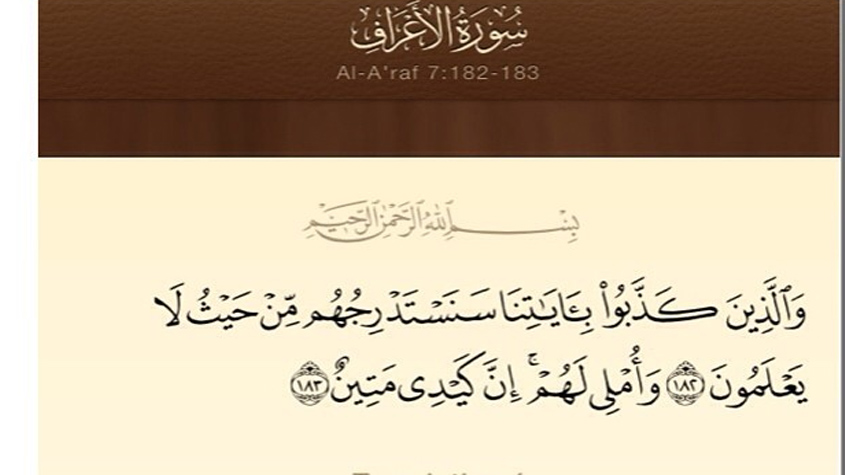 سُورَةُ الأَعْرَافِ
Al-A'raf 7:182-183
بِسْمِ ٱللَّهِ ٱلرَّحْمَٰنِ ٱلرَّحِيمِ
وَٱلَّذِينَ كَذَّبُوا۟ بِـَٔايَـٰتِنَا سَنَسْتَدْرِجُهُم مِّنْ حَيْثُ لَا
يَعْلَمُونَ ١٨٢ وَأُمْلِى لَهُمْ ۚ إِنَّ كَيْدِى مَتِينٌ ١٨٣